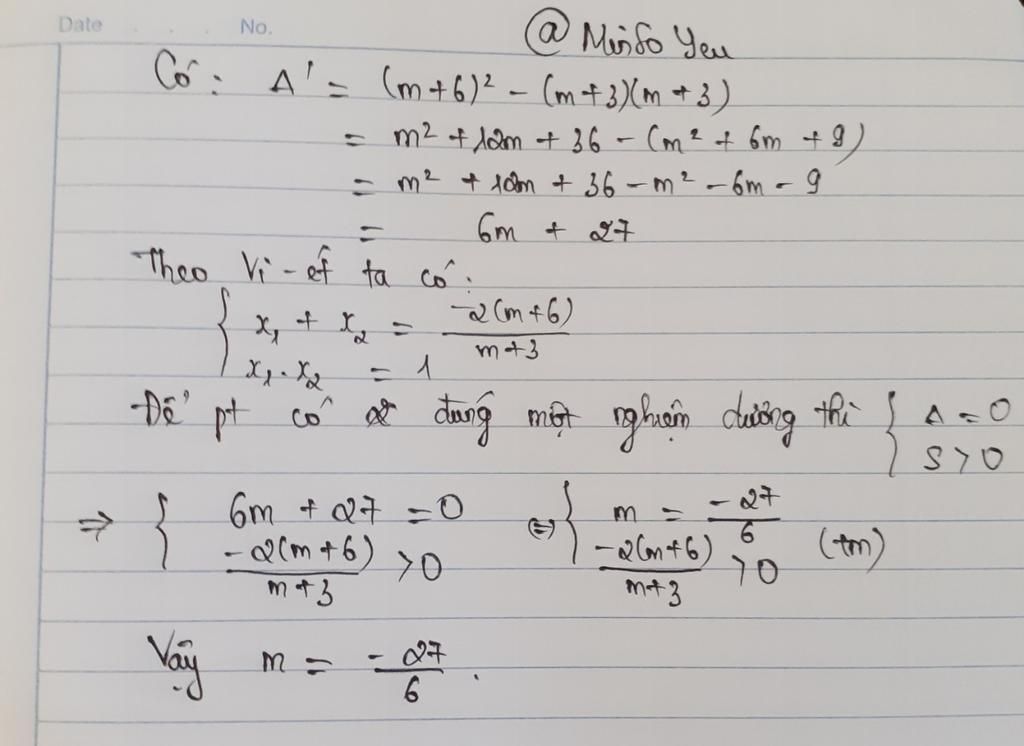 Date . . . No.
@ MinSo Yeu
Có: Δ' = (m+6)² - (m+3)(m+3)
= m² + 12m + 36 - (m² + 6m + 9)
= m² + 12m + 36 - m² - 6m - 9
= 6m + 27
Theo Vi-ét ta có:
{ x₁ + x₂ = -2(m+6) / m+3
x₁.x₂ = 1
Để pt có đúng một nghiệm dương thì { Δ = 0
S > 0
=> { 6m + 27 = 0 <=> { m = -27/6
-2(m+6) / m+3 > 0 -2(m+6) / m+3 > 0 (tm)
Vậy m = -27/6.